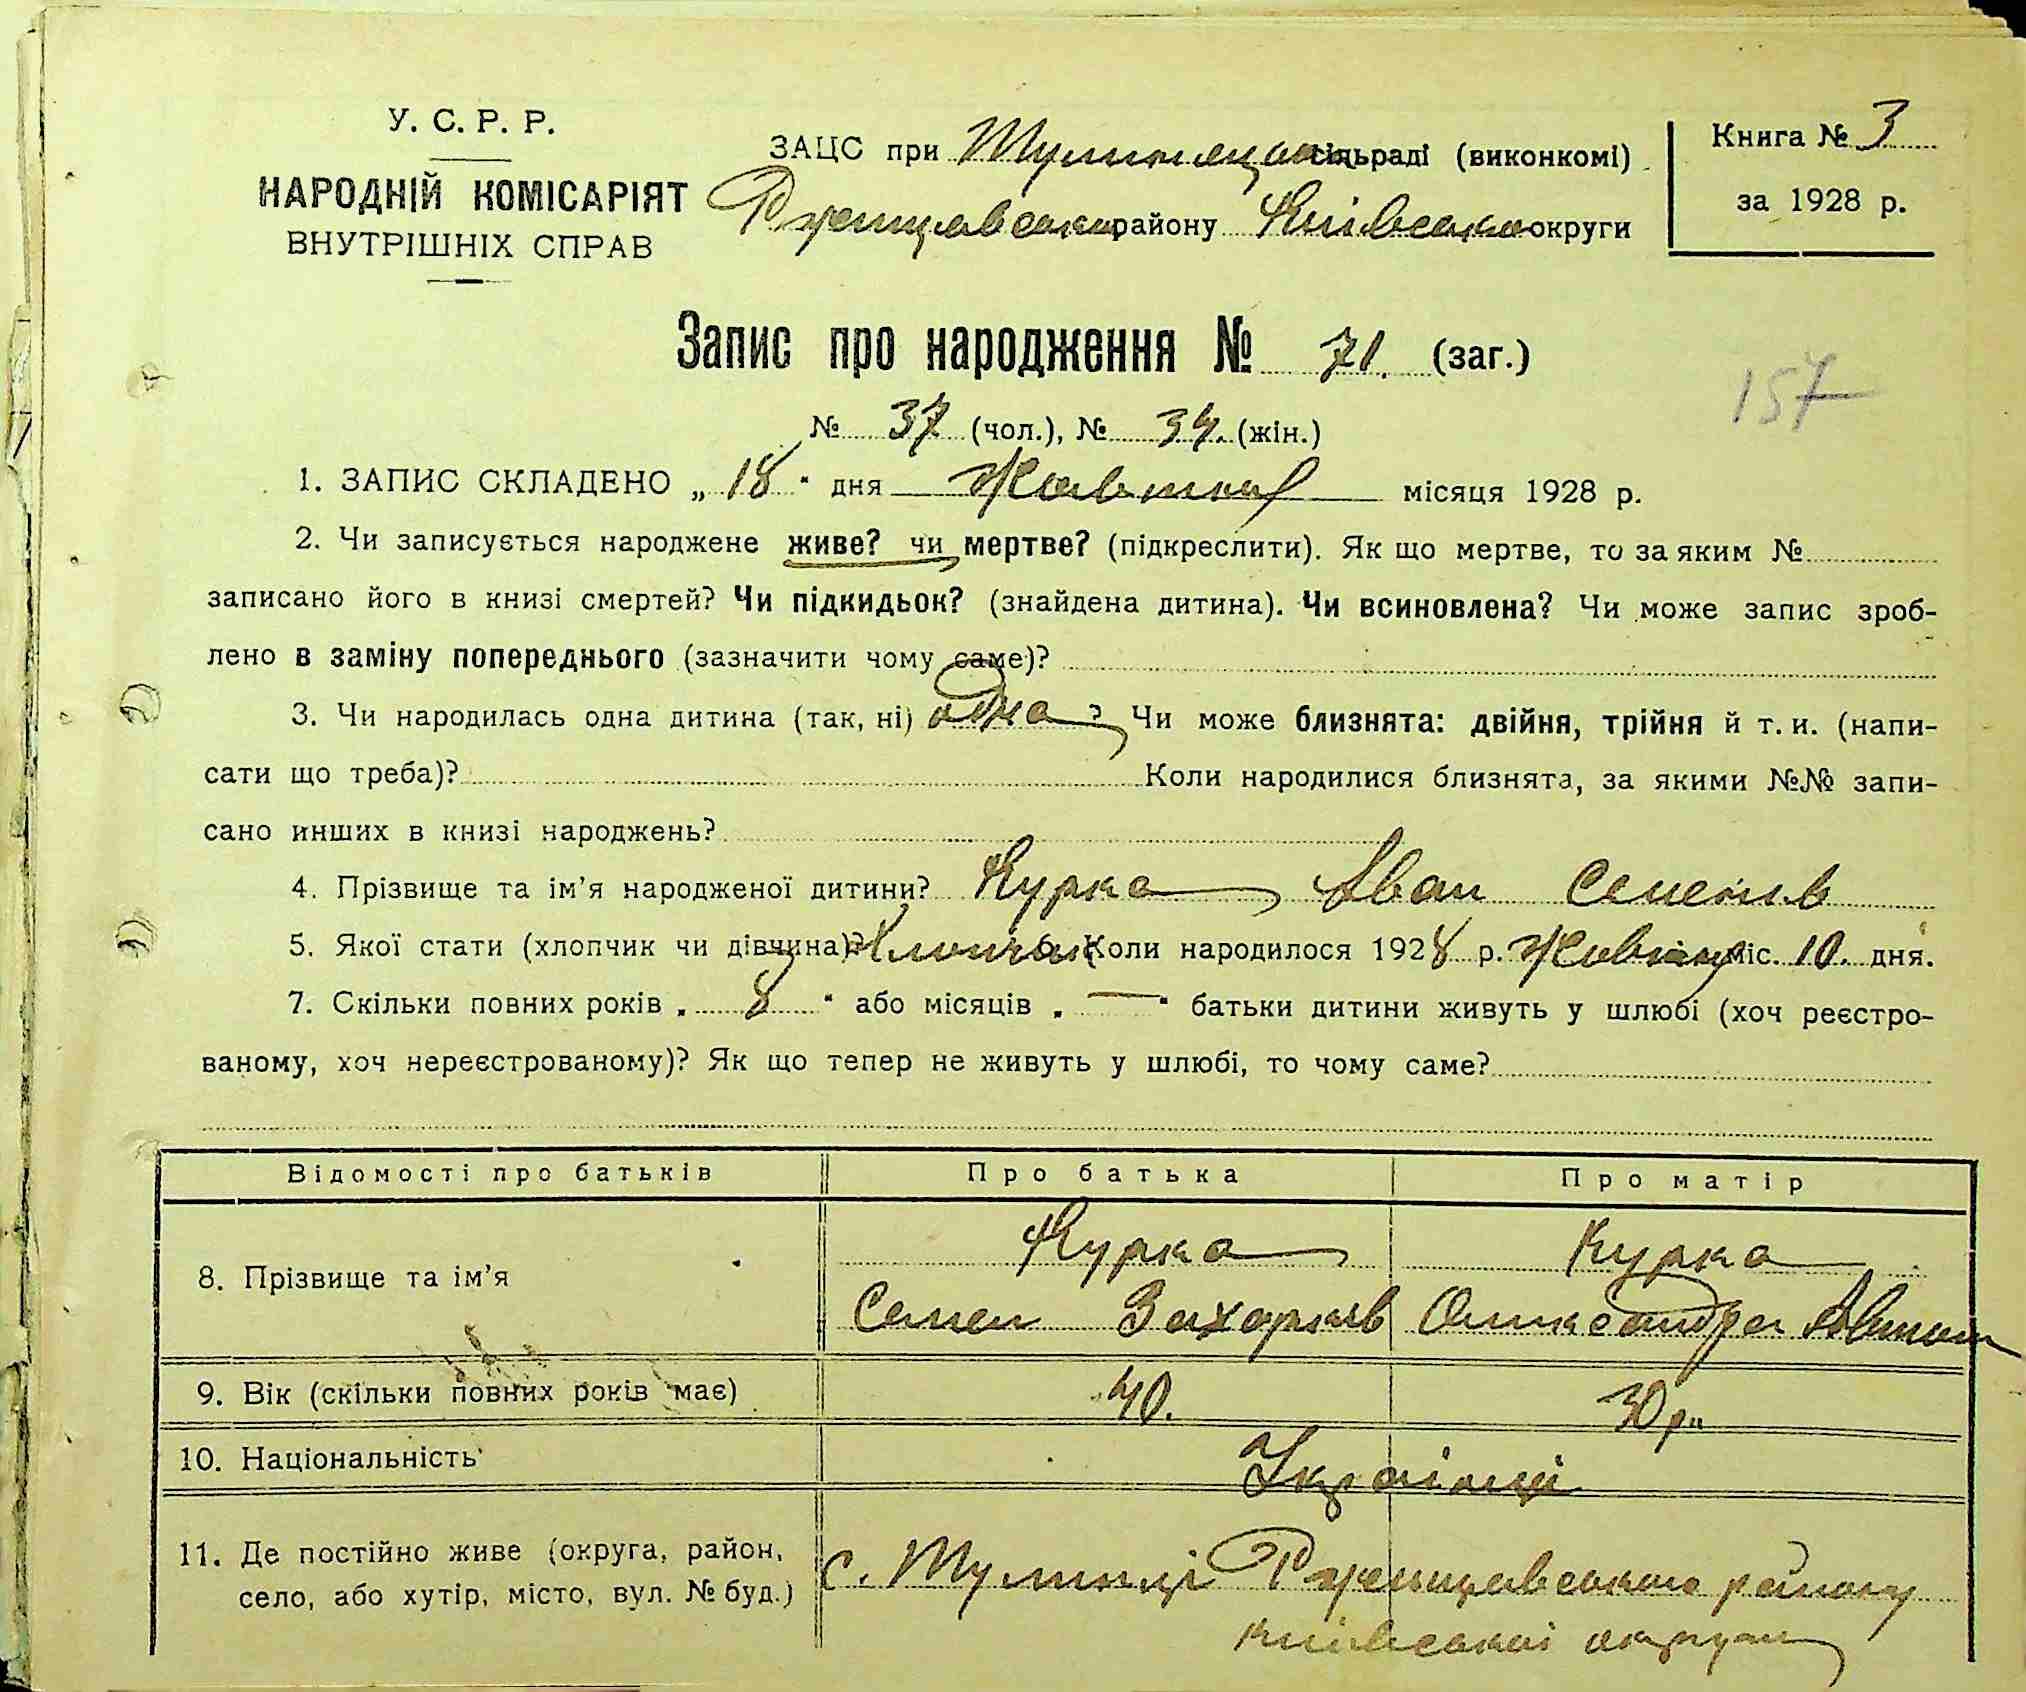 У. С. Р. Р.
НАРОДНІЙ КОМІСАРІЯТ
ВНУТРІШНІХ СПРАВ
ЗАЦС при сільраді (виконкомі)
району Київської округи
Книга № 3
за 1928 р.
Запис про народження № 71. (заг.)
157
№ 37 (чол.), № 34. (жін.)
1. ЗАПИС СКЛАДЕНО „ 18 " дня Жовтня місяця 1928 р.
2. Чи записується народжене живе? чи мертве? (підкреслити). Як що мертве, то за яким №
записано його в книзі смертей? Чи підкидьок? (знайдена дитина). Чи всиновлена? Чи може запис зроб-
лено в заміну попереднього (зазначити чому саме)?
3. Чи народилась одна дитина (так, ні) одна ? Чи може близнята: двійня, трійня й т. и. (напи-
сати що треба)? Коли народилися близнята, за якими №№ запи-
сано инших в книзі народжень?
4. Прізвище та ім'я народженої дитини? Курка Іван Семенів
5. Якої стати (хлопчик чи дівчина)? Хлопчик 6. Коли народилося 1928 р. Жовтня міс. 10. дня.
7. Скільки повних років „ 8 " або місяців „ — " батьки дитини живуть у шлюбі (хоч реєстро-
ваному, хоч нереєстрованому)? Як що тепер не живуть у шлюбі, то чому саме?
Відомості про батьків Про батька Про матір
8. Прізвище та ім'я Курка Курка
Семен Захарків Олександра
9. Вік (скільки повних років має) 40. 30 р.
10. Національність Українці
11. Де постійно живе (округа, район,
село, або хутір, місто, вул. № буд.)
с. Тулинці Ржищевського району
Київської округи